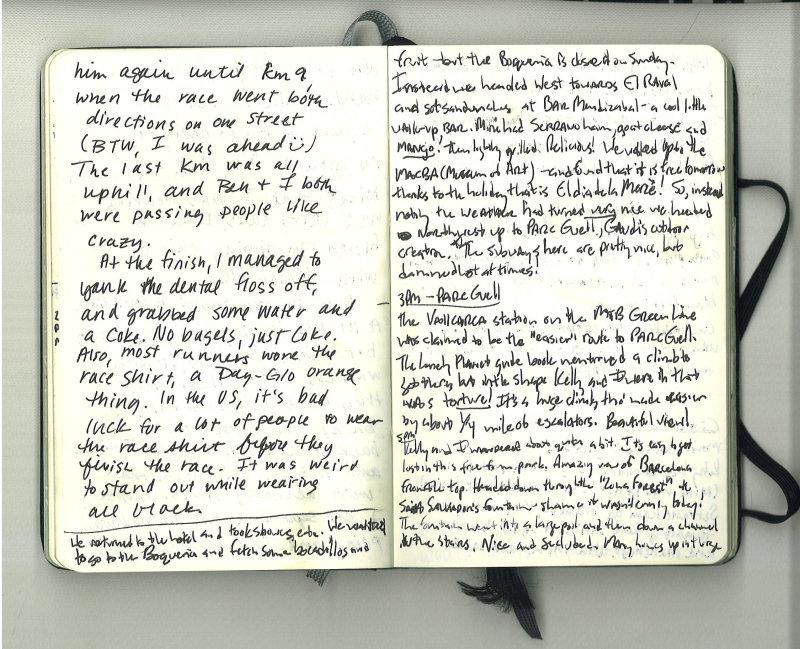 him again until km 9,
when the race went both
directions on one street
(BTW, I was ahead :)
The last km was all
uphill, and Ben + I both
were passing people like
crazy.
At the finish, I managed to
yank the dental floss off,
and grabbed some water and
a Coke. No bagels, just Coke.
Also, most runners wore the
race shirt, a Day-Glo orange
thing. In the US, it's bad
luck for a lot of people to wear
the race shirt before they
finish the race. It was weird
to stand out while wearing
all black.
We returned to the hotel and took showers, etc. We wanted
to go to the Boqueria and fetch some bocadillos and
fruit - but the Boqueria is closed on Sunday.
Instead we headed West towards El Raval
and got sandwiches at BAR Mendizabal - a cool little
walk-up BAR. Mine had Serrano ham, goat cheese and
Mango, then lightly grilled. Delicious! We walked up to the
MACBA (Museum of Art) - and found that it is free tomorrow
thanks to the holiday that is El dia de la Mercè! So, instead
noting the weather had turned very nice we headed
Northwest up to Parc Guell, Gaudi's outdoor
creation. The subways here are pretty nice, but
damned hot at times.
3PM - PARC Guell
The VAllCARCA station on the Green Line
was claimed to be the "easier" route to PARC Guell.
The Lonely Planet guide book mentioned a climb to
get there, but in the shape Kelly and I were in that
was torture! It's a huge climb, tho' made easier
by about 1/4 mile of escalators. Beautiful view!
5PM
Kelly and I wandered about quite a bit. It's easy to get
lost in this free form park. Amazing view of Barcelona
from the top. Headed down through the "Forest"
fountain shame it wasn't
The fountain went into a large pool and then down a channel
the stairs. Nice and secluded. Many